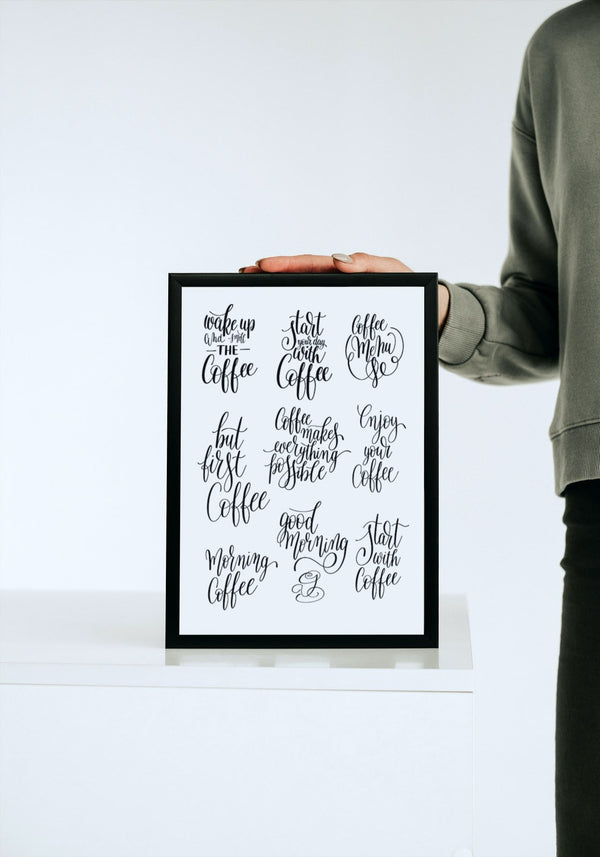 wake up
THE
Coffee
start
your day
with
Coffee
Coffee
Menu
but
first
Coffee
Coffee
makes
everything
possible
Enjoy
your
Coffee
Morning
Coffee
good
Morning
start
with
Coffee